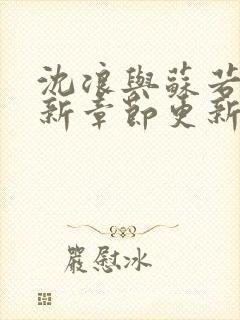 沈浪與蘇若
新章節更新
嚴慰冰